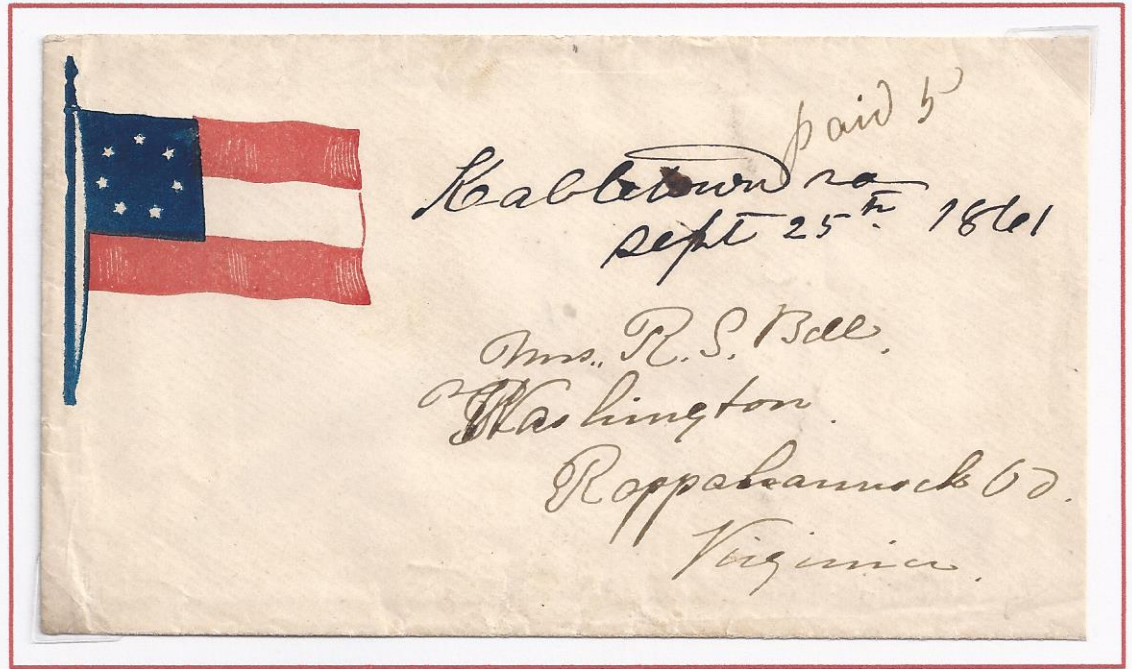 paid 5
Kabletown va
sept 25th 1861
Mrs. R. S. Bell.
Washington.
Rappahannock Co.
Virginia.